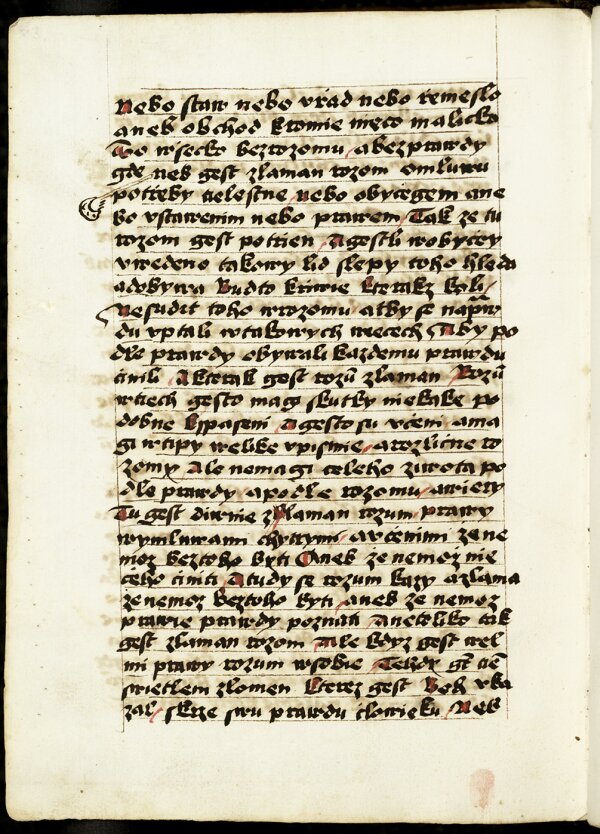 Nebo staw nebo vrad nebo remeslo
aneb obchod kromie nieco malicko
To wssecko bez rozomu / a bez prawdy
gde neb gest zlaman rozom omluwu
potrzeby tielestne / nebo obyczegem ane
bo vstawenim nebo prawem Tak ze tu
rozom gest potrien / A gestli w obyczey
vwedeno takowy lid slepy toho hleda
a dobywa Budto kriwie kterakz koli /
Nesudit toho w rozomu / aby se napraw
du vptali w takowych wiecech / Aby po
dle prawdy obywali kazdemu prawdu
cinili / A kterak gest rozum zlaman
wtiech gesto magi skutky niekake po
dobne k spaseni / A gesto su vceni / a ma
gi wtipy welike v pismie / a rozlicne ro
zomy Ale nemagi celeho ziwota po
dle prawdy / a podle rozomu / a wiery
Tu gest diwnie zlaman rozum / prawy
wymluwami chytrymi / a vcenim ze ne
moz bez toho byti Aneb ze nemoz nie
ceho ciniti / A tudy se rozum kazy a zlama
ze nemoz bez toho byti / aneb ze nemoz
prawie prawdy poznati A netoliko tak
gest zlaman rozom / Ale kdyz gest wel
mi prawy rozum w sobie / Tehdy
swietlem zlomen kterez gest Boh vka
zal / skrze swu prawdu clowieku / Neb